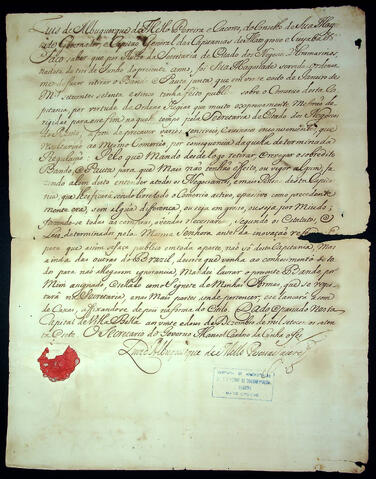 Luis de Albuquerque de Mello Pereira e Caceres, do Conselho de Sua Mag.
Governador, e Capitão General das Capitanias do Mato grosso e Cuyabá &
Faço saber que por Aviso da Secretaria de Estado dos Negocios Ultramarinos
datada de de Junho do prezente anno, foi Sua Magestade servida ordenar
me fizese retirar o Bando, e Pauta junta que em vinte sete de Janeiro de
Mil setecentos setenta e sinco tinha feito publicar sobre o Comercio desta Ca
pitania, por virtude de Ordens Regias que muito expresamente Me forão di
rigidas para este fim naquele tempo pela Secretaria de Estado dos Negocios
do Reino, a fim de precaver varios
rezultarião ao Mesmo Comercio, por consequencia daquela determinada
Regulação: Pelo que Mando desde logo retirar, e revogar o sobredito
Bando, e Pauta, para que Mais não tenha efeito, ou vigor algum; fa
zendo alem disto entender a todos os Negociantes, e mais Povos desta Capi
tania, que lhe ficara sendo livre todo o Comercio activo, e pasivo como precedente
mente era, sem alguma diferença, ou seja em groso, ou seja por Miudo;
segundo os Estatutos, e
Leis, determinados pela Mesma Senhora antes da inovação
para que asim se faça publico em toda a parte, não só desta Capitania, Mas
ainda das outras do Brazil, e que venha ao conhecimento de to
do para não alegarem ignorancia, Mandei lavrar o prezente Bando, por
Mim asignado, e Selado com o Signete de Minhas Armas, que se regis
tará na Secretaria, e na Mais partes onde pertencer, e se lançará a som
de Caxas, afixandose depois na forma do Estilo. Dado e pasado nesta
Capital de Vila Bela aos vinte e dous de Dezembro de mil setecentos seten
ta e sete O Secretario do Governo Manoel Cardozo da Cunha o fes
Luis d'Albuquerque de Mello Pereira e Caceres